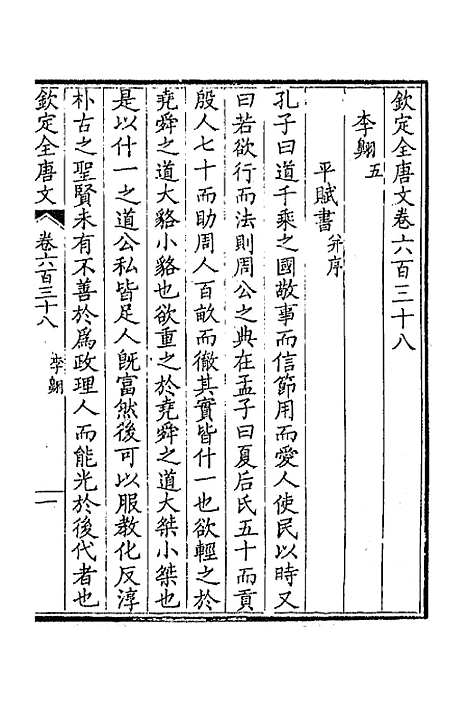 欽定全唐文卷六百三十八
李翺五
平賦書并序
孔子曰道千乘之國敬事而信節用而愛人使民以時又
曰若欲行而法則周公之典在孟子曰夏后氏五十而貢
殷人七十而助周人百畝而徹其實皆什一也欲輕之於
堯舜之道大貉小貉也欲重之於堯舜之道大桀小桀也
是以什一之道公私皆足人旣富然後可以服教化反淳
朴古之聖賢未有不善於爲政理人而能光於後代者也
欽定全唐文
卷六百三十八
李翺
一